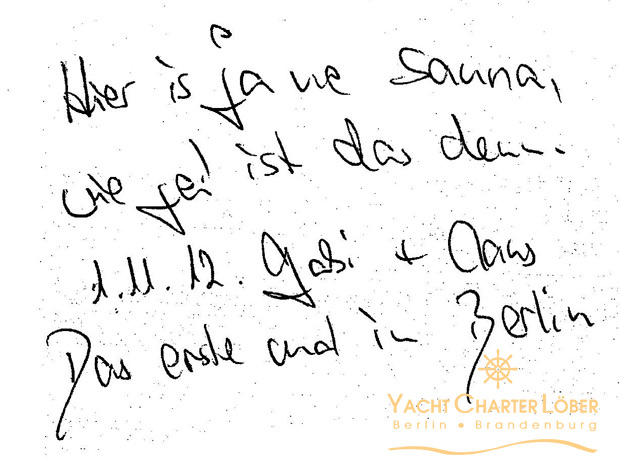 Hier is ja ne Sauna,
wie gei ist das denn.
1.11.12. Gabi + Claus
Das erste und in Berlin
YACHT CHARTER LÖBER
Berlin • Brandenburg